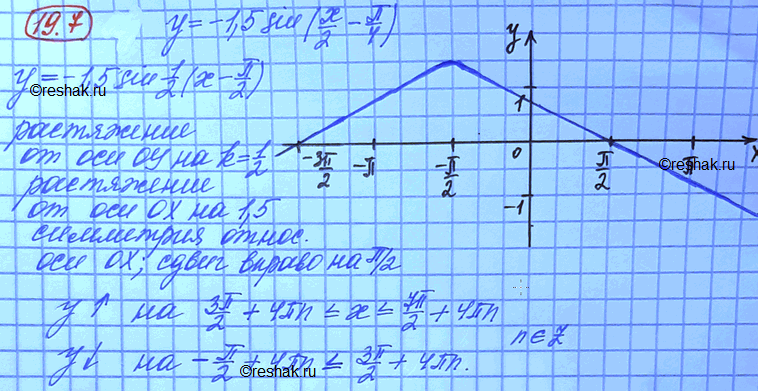 19.7
y = -1,5 sin(x/2 - π/4)
y = -1,5 sin 1/2 (x - π/2)
©reshak.ru
растяжение
от оси ОУ на k = 1/2
растяжение
от оси ОХ на 1,5
симметрия относ.
оси ОХ; сдвиг вправо на π/2
y
1
-3π/2 -π -π/2 0 π/2 π x
-1
©reshak.ru
y↑ на 3π/2 + 4πn ≤ x ≤ 7π/2 + 4πn
n ∈ Z
y↓ на -π/2 + 4πn ≤ 3π/2 + 4πn.
©reshak.ru